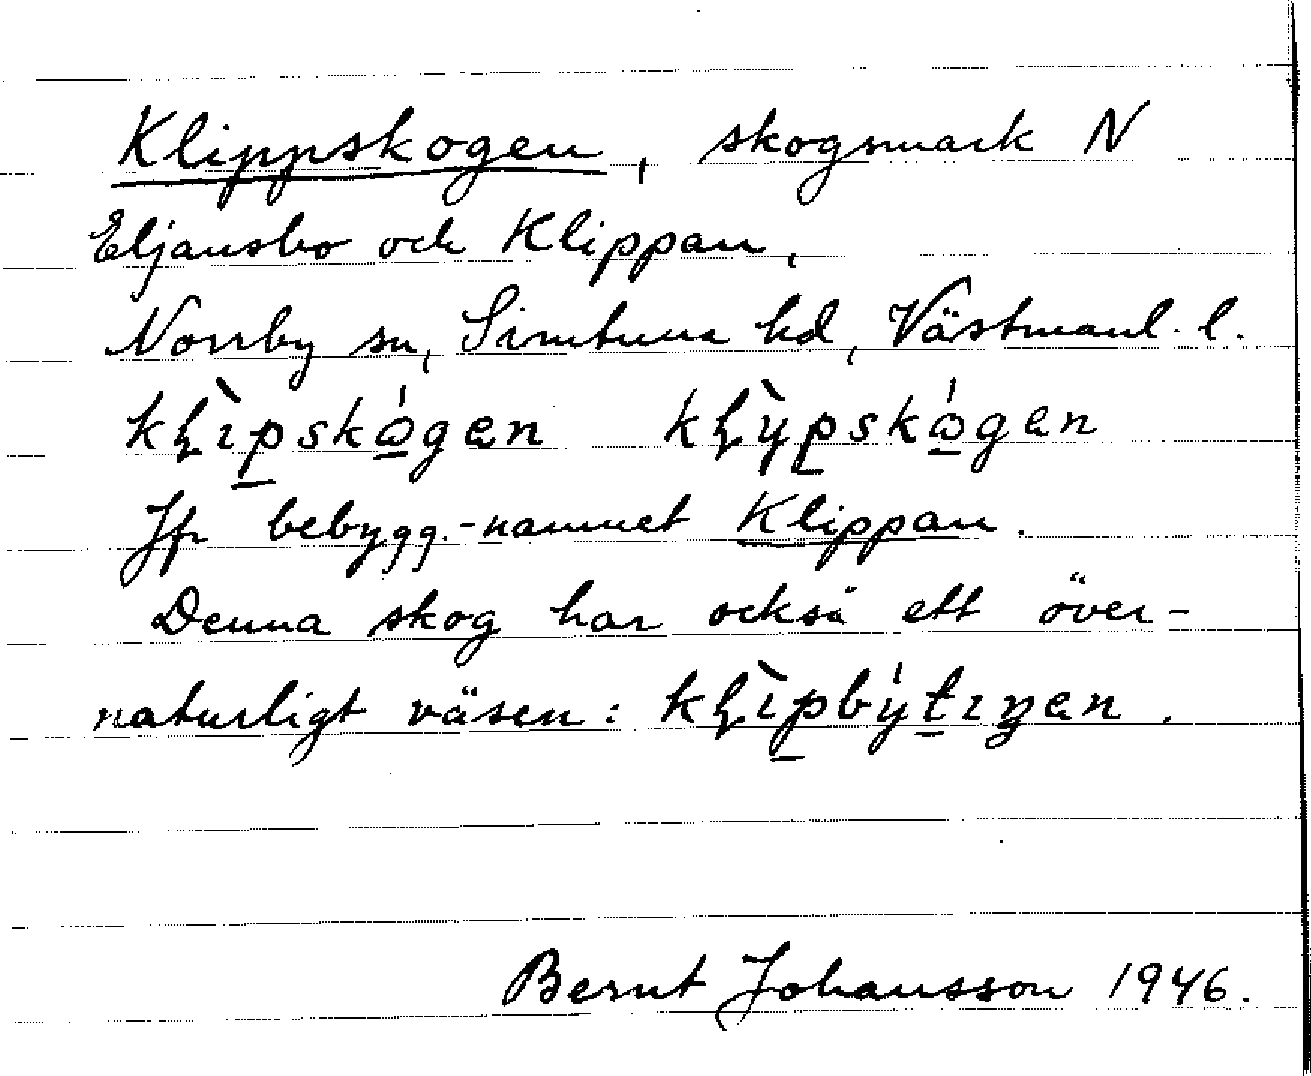 Klippskogen, skogsmark N
Eljansbo och Klippan,
Norrby sn, Simtuna hd, Västmanl. l.
kḷìp̱skó̱gen kḷỳp̱skó̱gen
Jfr bebygg.-namnet Klippan.
Denna skog har också ett över-
naturligt väsen: kḷìp̱býṯıŋen.
Bernt Johansson 1946.